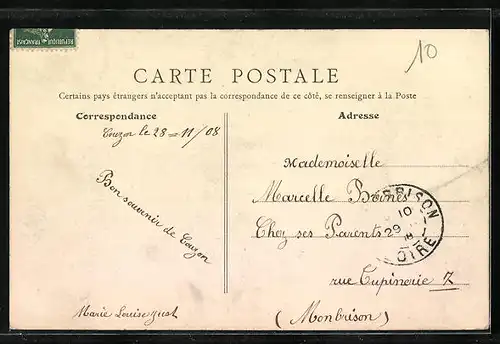 REPUBLIQUE FRANÇAISE
10
CARTE POSTALE
Certains pays étrangers n'acceptant pas la correspondance de ce côté, se renseigner à la Poste
Correspondance
Adresse
Couzon le 28=11/08
Bon souvenir de Couzon
Marie Louise
Mademoiselle
Marcelle
Chez ses Parents
rue Tupinerie 7
(Montbrison)
BRISON
10
29
OIRE